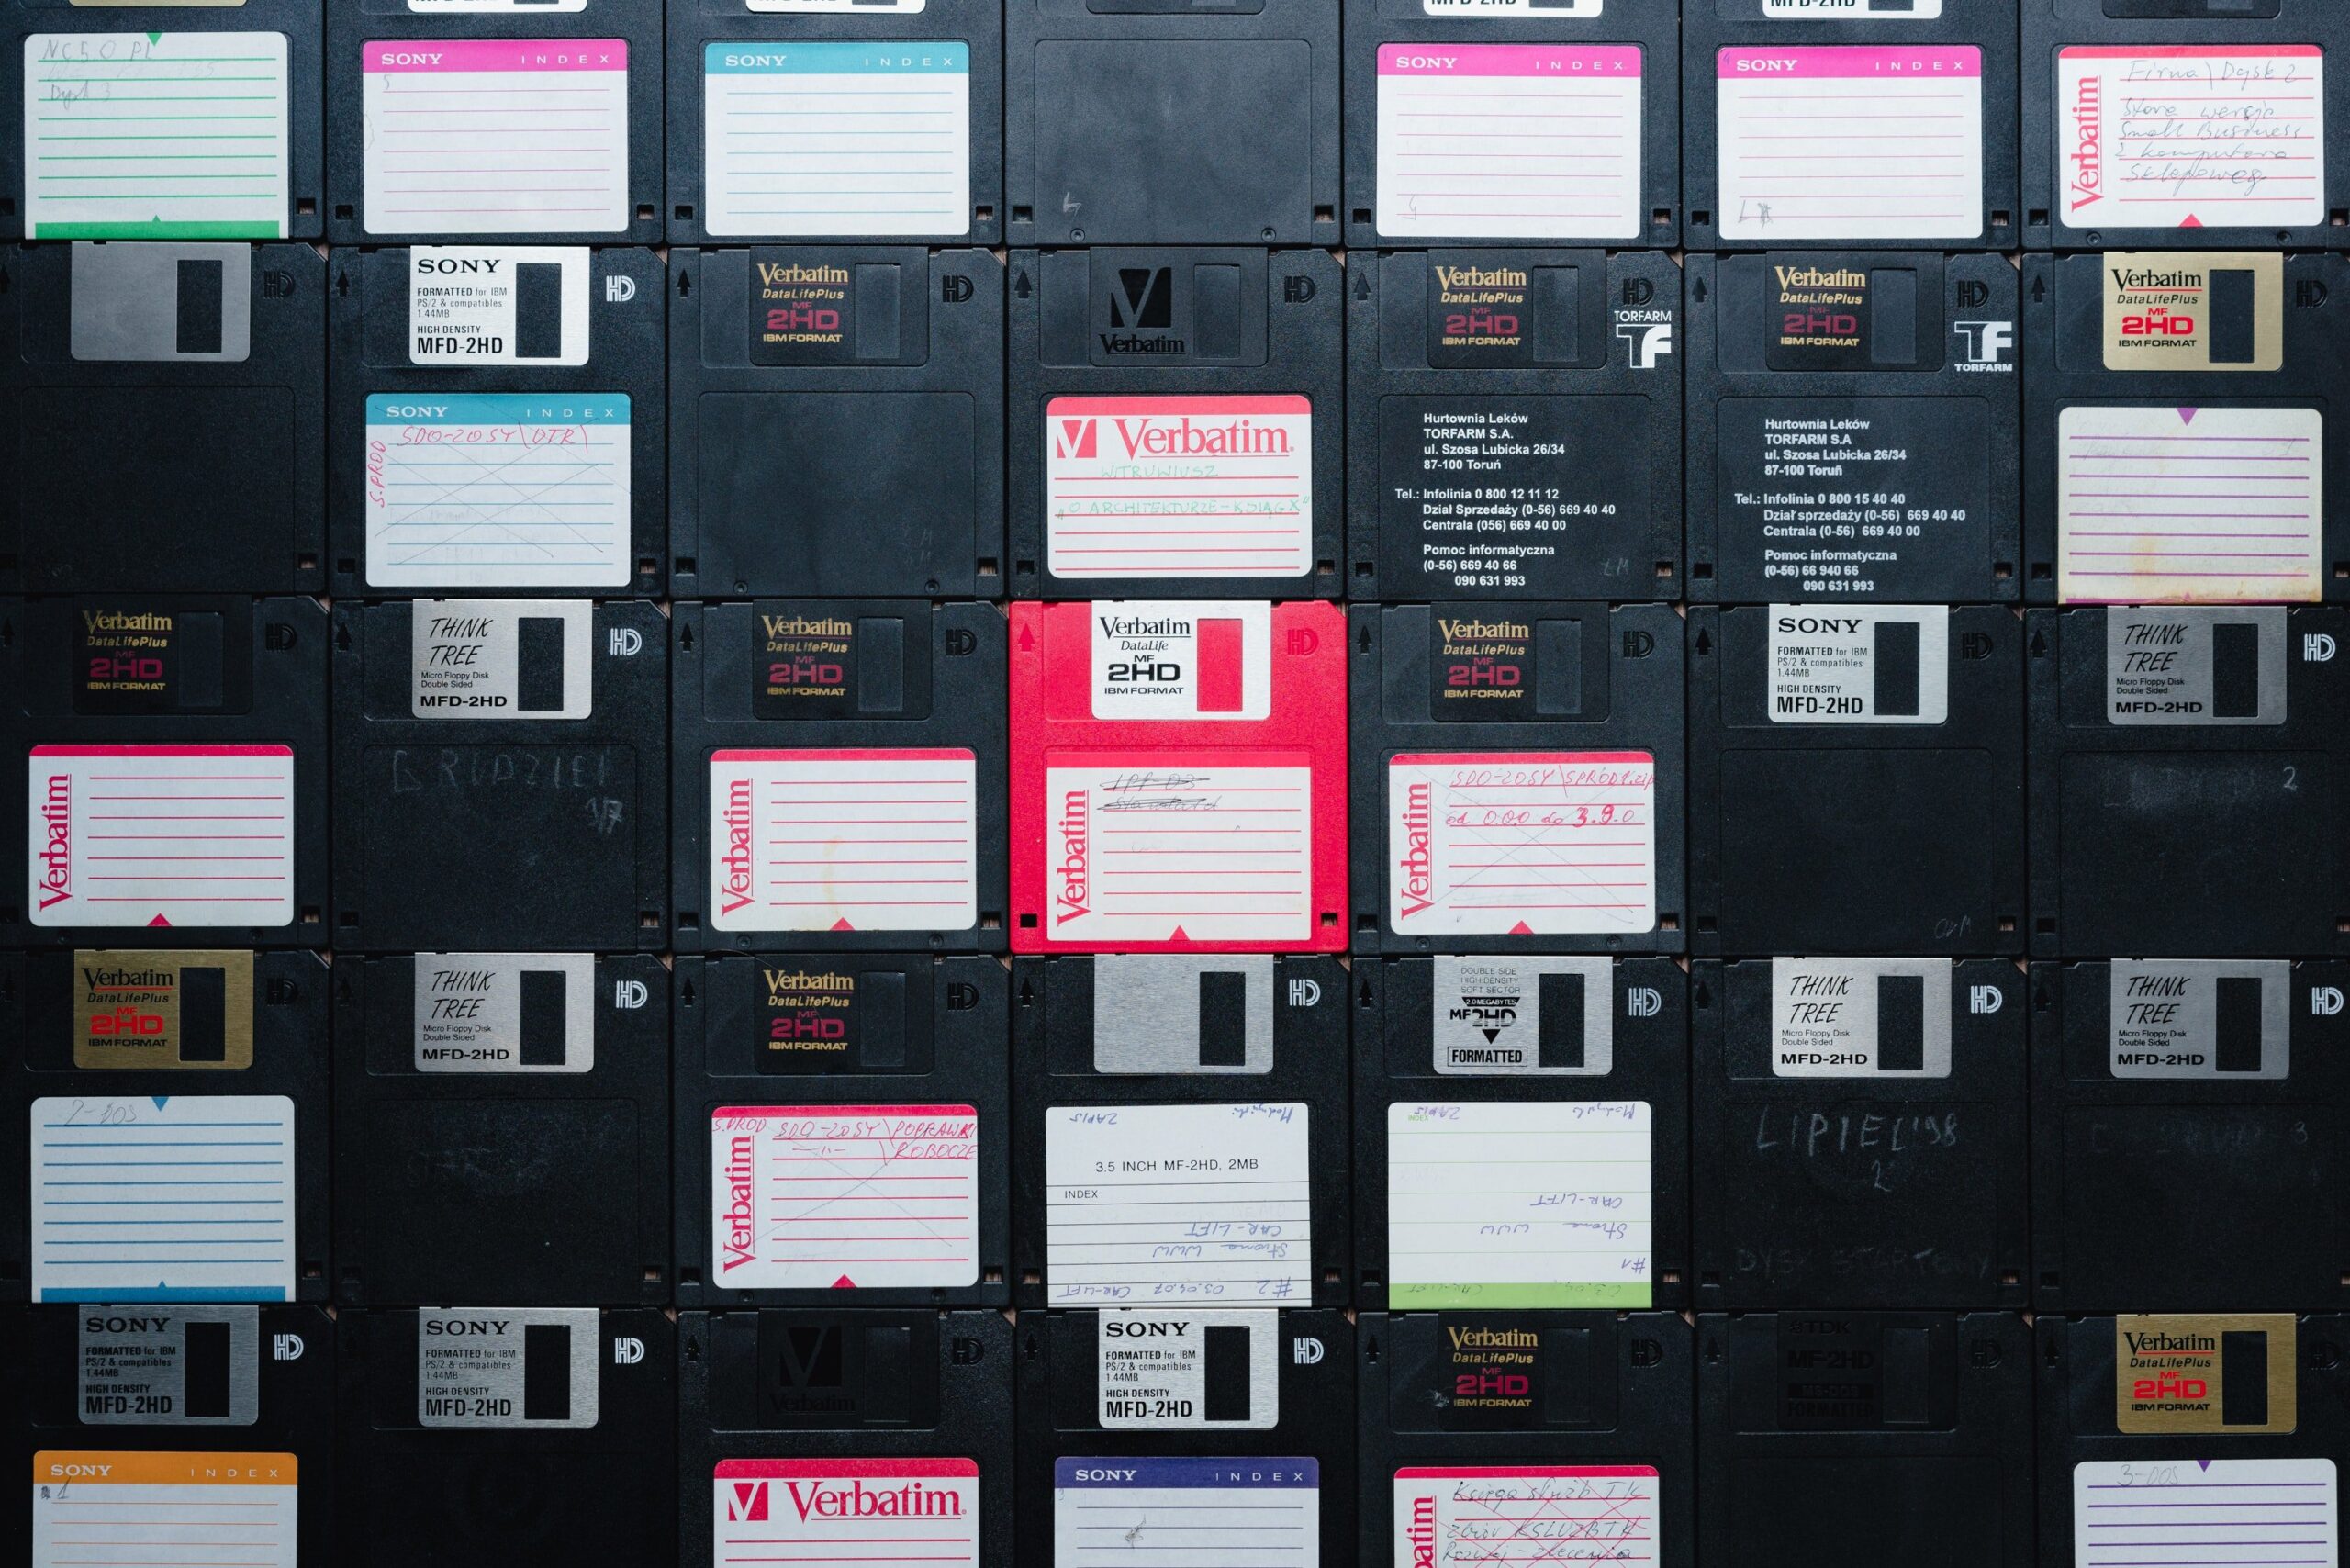 MFD-2HD
MFD-2HD
NC50 PL
Dysk 3
SONY INDEX
5
SONY INDEX
4
SONY INDEX
SONY INDEX
Verbatim
Firma\Dysk 2
Stara wersja
Small Business
z komputera
Sklepowego
HD
SONY
FORMATTED for IBM
PS/2 & compatibles
1.44MB
HIGH DENSITY
MFD-2HD
HD
SONY INDEX
S.PROD
SDO-20SY\DTR\
Verbatim
DataLifePlus
MF
2HD
IBM FORMAT
HD
Verbatim
HD
Verbatim
WITRUWIUSZ
"O ARCHITEKTURZE-KSIĄG X"
Verbatim
DataLifePlus
MF
2HD
IBM FORMAT
HD
TORFARM
TF
Hurtownia Leków
TORFARM S.A.
ul. Szosa Lubicka 26/34
87-100 Toruń
Tel.: Infolinia 0 800 12 11 12
Dział Sprzedaży (0-56) 669 40 40
Centrala (056) 669 40 00
Pomoc informatyczna
(0-56) 669 40 66
090 631 993
Verbatim
DataLifePlus
MF
2HD
IBM FORMAT
HD
TF
TORFARM
Hurtownia Leków
TORFARM S.A
ul. Szosa Lubicka 26/34
87-100 Toruń
Tel.: Infolinia 0 800 15 40 40
Dział sprzedaży (0-56) 669 40 40
Centrala (0-56) 669 40 00
Pomoc informatyczna
(0-56) 66 940 66
090 631 993
Verbatim
DataLifePlus
MF
2HD
IBM FORMAT
HD
Verbatim
DataLifePlus
MF
2HD
IBM FORMAT
HD
Verbatim
THINK
TREE
Micro Floppy Disk
Double Sided
MFD-2HD
HD
Verbatim
DataLifePlus
MF
2HD
IBM FORMAT
HD
Verbatim
Verbatim
DataLife
MF
2HD
IBM FORMAT
HD
Verbatim
Standard
Verbatim
DataLifePlus
MF
2HD
IBM FORMAT
HD
Verbatim
SDO-20SY\SPROD1.zip
od 0.0.0 do 3.9.0
SONY
FORMATTED for IBM
PS/2 & compatibles
1.44MB
HIGH DENSITY
MFD-2HD
HD
THINK
TREE
Micro Floppy Disk
Double Sided
MFD-2HD
HD
2
Verbatim
DataLifePlus
MF
2HD
IBM FORMAT
HD
7-DOS
THINK
TREE
Micro Floppy Disk
Double Sided
MFD-2HD
HD
Verbatim
DataLifePlus
MF
2HD
IBM FORMAT
HD
Verbatim
S.PROD SDO-20SY\POPRAWKI
-"- \ROBOCZE
HD
ZAPIS
3.5 INCH MF-2HD, 2MB
INDEX
CAR-LIFT
Strona WWW
#2 03.04.07 CAR-LIFT
DOUBLE SIDE
HIGH DENSITY
SOFT SECTOR
2.0 MEGABYTES
MF2HD
FORMATTED
HD
INDEX
ZAPIS
CAR-LIFT
Strona WWW
#1
THINK
TREE
Micro Floppy Disk
Double Sided
MFD-2HD
HD
LIPIEC'98
2
DYSK STARTOWY
THINK
TREE
Micro Floppy Disk
Double Sided
MFD-2HD
HD
3
SONY
FORMATTED for IBM
PS/2 & compatibles
1.44MB
HIGH DENSITY
MFD-2HD
HD
SONY INDEX
1
SONY
FORMATTED for IBM
PS/2 & compatibles
1.44MB
HIGH DENSITY
MFD-2HD
HD
Verbatim
HD
Verbatim
SONY
FORMATTED for IBM
PS/2 & compatibles
1.44MB
HIGH DENSITY
MFD-2HD
HD
SONY INDEX
Verbatim
DataLifePlus
MF
2HD
IBM FORMAT
HD
Księga służb TK
zbiór KSLUZBTK
Rozwój - zlecenia
TDK
MF-2HD
FORMATTED
HD
Verbatim
DataLifePlus
MF
2HD
IBM FORMAT
HD
3-DOS